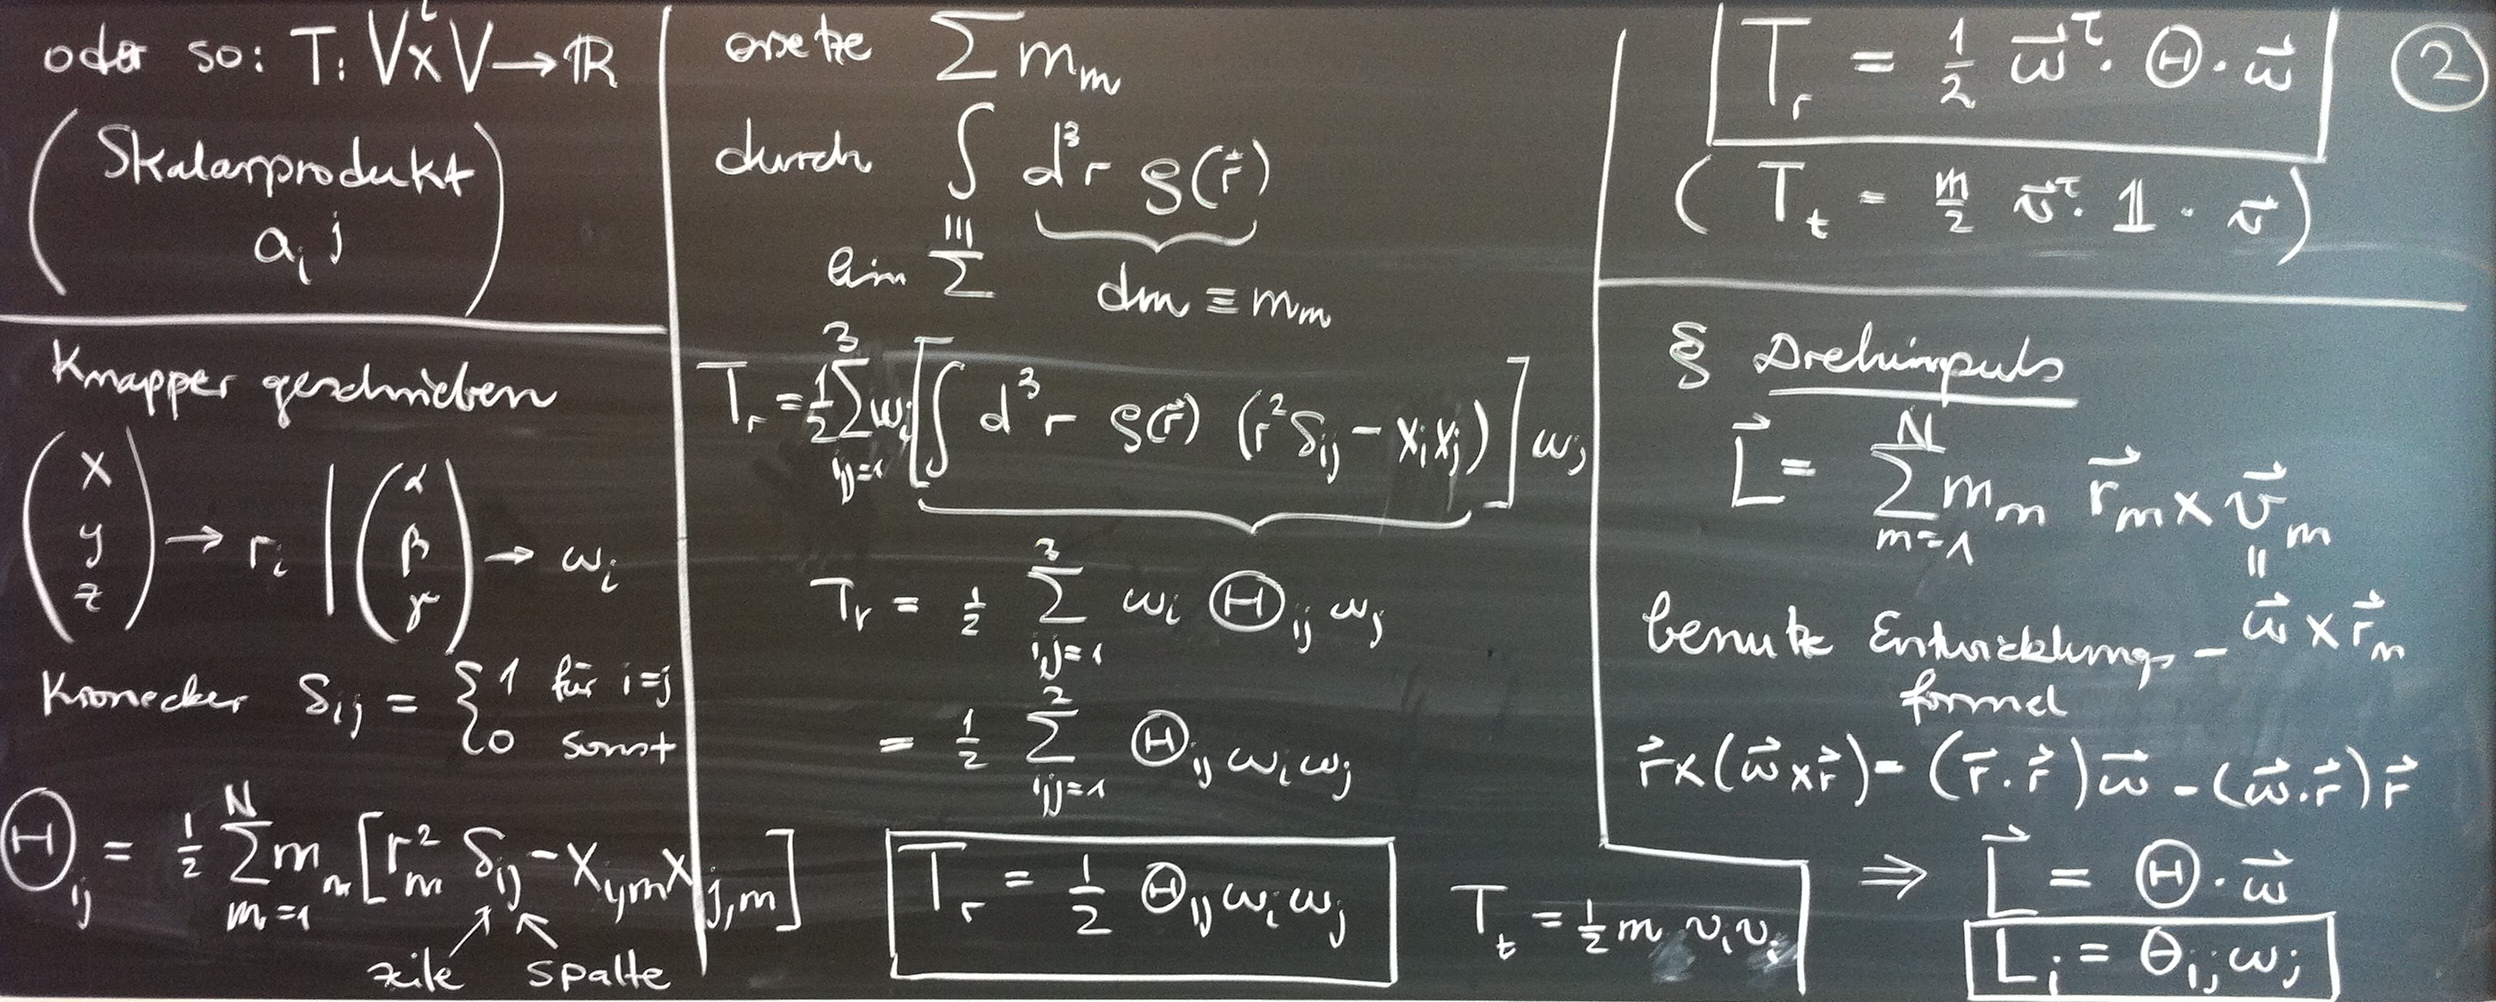 oder so: T: V^τ x V → ℝ
(Skalarprodukt
a_i j)
Knapper geschrieben
(x y z) → r_i | (α β γ) → ω_i
Kronecker δ_ij = { 1 für i=j
0 sonst
Θ_ij = 1/2 Σ_{n=1}^{N} m_n [r_n^2 δ_ij - x_{i,n} x_{j,n}]
Zeile Spalte
ersetze Σ m_n
durch ∫ d^3r ρ(r⃗)
ein Σ dm ≡ m_n
T_r = 1/2 Σ_{ij=1}^{3} ω_i [∫ d^3r ρ(r⃗) (r^2 δ_ij - x_i x_j)] ω_j
T_r = 1/2 Σ_{ij=1}^{3} ω_i Θ_ij ω_j
= 1/2 Σ_{ij=1}^{2} Θ_ij ω_i ω_j
T_r = 1/2 Θ_ij ω_i ω_j
T_t = 1/2 m v_i v_i
T_r = 1/2 ω⃗^τ · Θ · ω⃗
②
(T_t = m/2 v⃗^τ · 𝟙 · v⃗)
§ Drehimpuls
L⃗ = Σ_{n=1}^{N} m_n r⃗_n x v⃗_n
=
ω⃗ x r⃗_n
benutze Entwicklungs-
formel
r⃗x(ω⃗xr⃗) = (r⃗·r⃗)ω⃗ - (ω⃗·r⃗)r⃗
⇒ L⃗ = Θ · ω⃗
L_i = Θ_ij ω_j